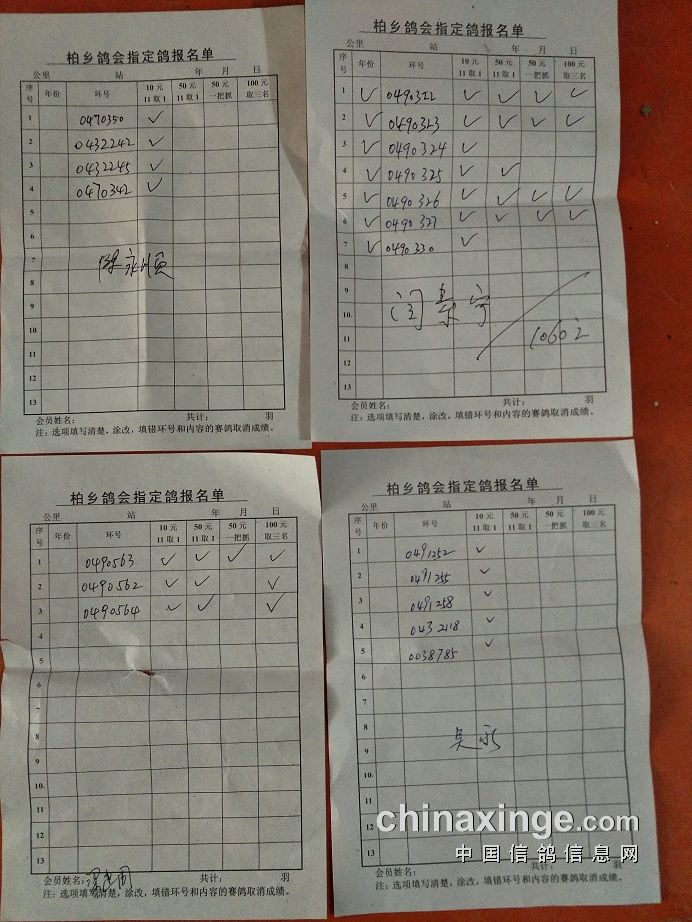 柏乡鸽会指定鸽报名单
公里 站 年 月 日
序号 年份 环号 10元11取1 50元11取1 50元一把抓 100元取三名
1 0470350 ✓
2 0432242 ✓
3 0432245 ✓
4 0470342 ✓
5
6
7
8
9
10
11
12
13
会员姓名: 共计: 羽
注:选项填写清楚,涂改,填错环号和内容的赛鸽取消成绩。
柏乡鸽会指定鸽报名单
公里 站 年 月 日
序号 年份 环号 10元11取1 50元11取1 50元一把抓 100元取三名
1 ✓ 0490322 ✓ ✓ ✓ ✓
2 ✓ 0490323 ✓ ✓ ✓ ✓
3 ✓ 0490324 ✓
4 ✓ 0490325 ✓ ✓
5 ✓ 0490326 ✓ ✓ ✓ ✓
6 ✓ 0490327 ✓ ✓ ✓ ✓
7 ✓ 0490330 ✓
8
9
10
11
12
13
会员姓名: 共计: 羽
注:选项填写清楚,涂改,填错环号和内容的赛鸽取消成绩。
柏乡鸽会指定鸽报名单
公里 站 年 月 日
序号 年份 环号 10元11取1 50元11取1 50元一把抓 100元取三名
1 0490563 ✓ ✓ ✓ ✓
2 0490562 ✓ ✓ ✓
3 0490564 ✓ ✓ ✓
4
5
6
7
8
9
10
11
12
13
会员姓名: 共计: 羽
注:选项填写清楚,涂改,填错环号和内容的赛鸽取消成绩。
柏乡鸽会指定鸽报名单
公里 站 年 月 日
序号 年份 环号 10元11取1 50元11取1 50元一把抓 100元取三名
1 0491252 ✓
2 0491255 ✓
3 0491258 ✓
4 0432118 ✓
5 0038785 ✓
6
7
8
9
吴永
10
11
12
13
会员姓名: 共计: 羽
注:选项填写清楚,涂改,填错环号和内容的赛鸽取消成绩。
chinaxinge.com
中国信鸽信息网